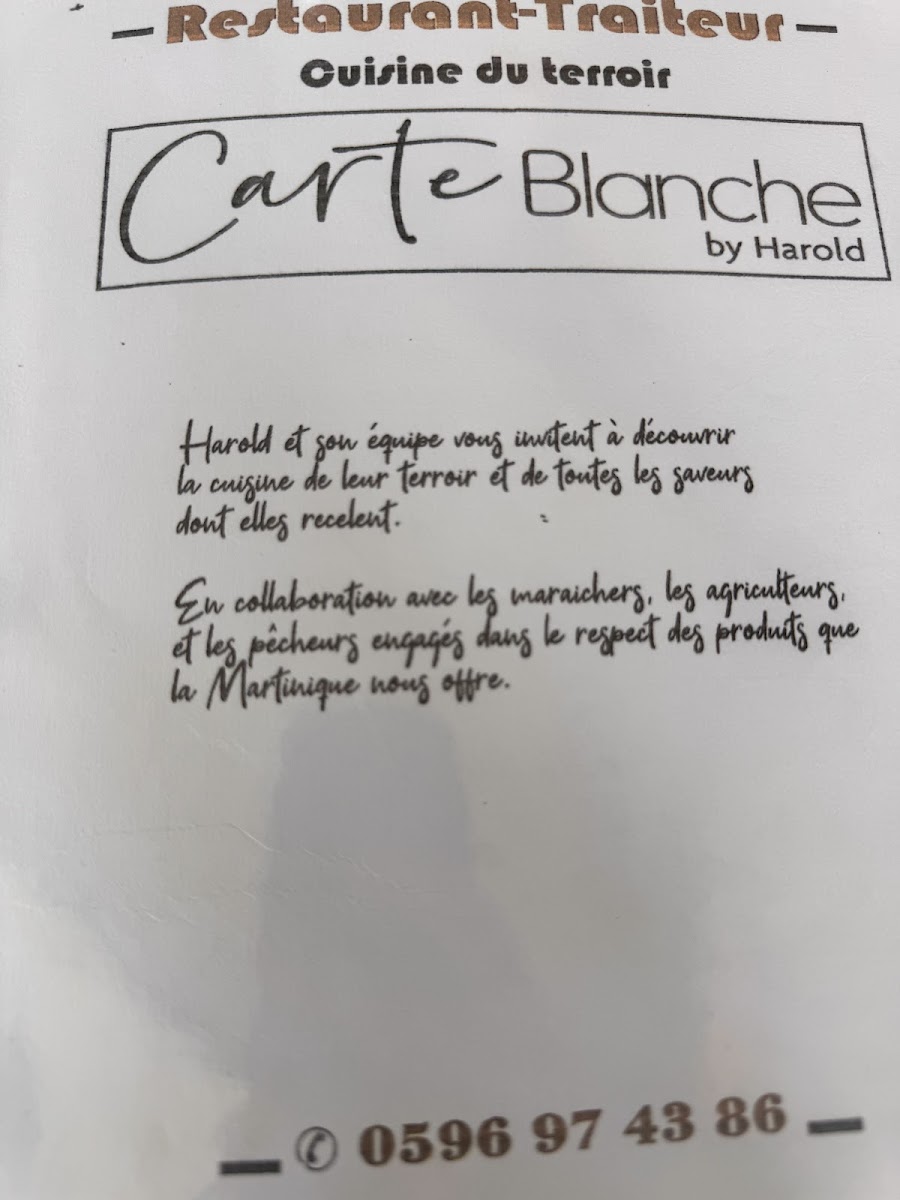 Restaurant-Traiteur
Cuisine du terroir
Carte Blanche
by Harold
Harold et son équipe vous invitent à découvrir
la cuisine de leur terroir et de toutes les saveurs
dont elles recelent.
En collaboration avec les maraichers, les agriculteurs,
et les pêcheurs engagés dans le respect des produits que
la Martinique nous offre.
✆ 0596 97 43 86